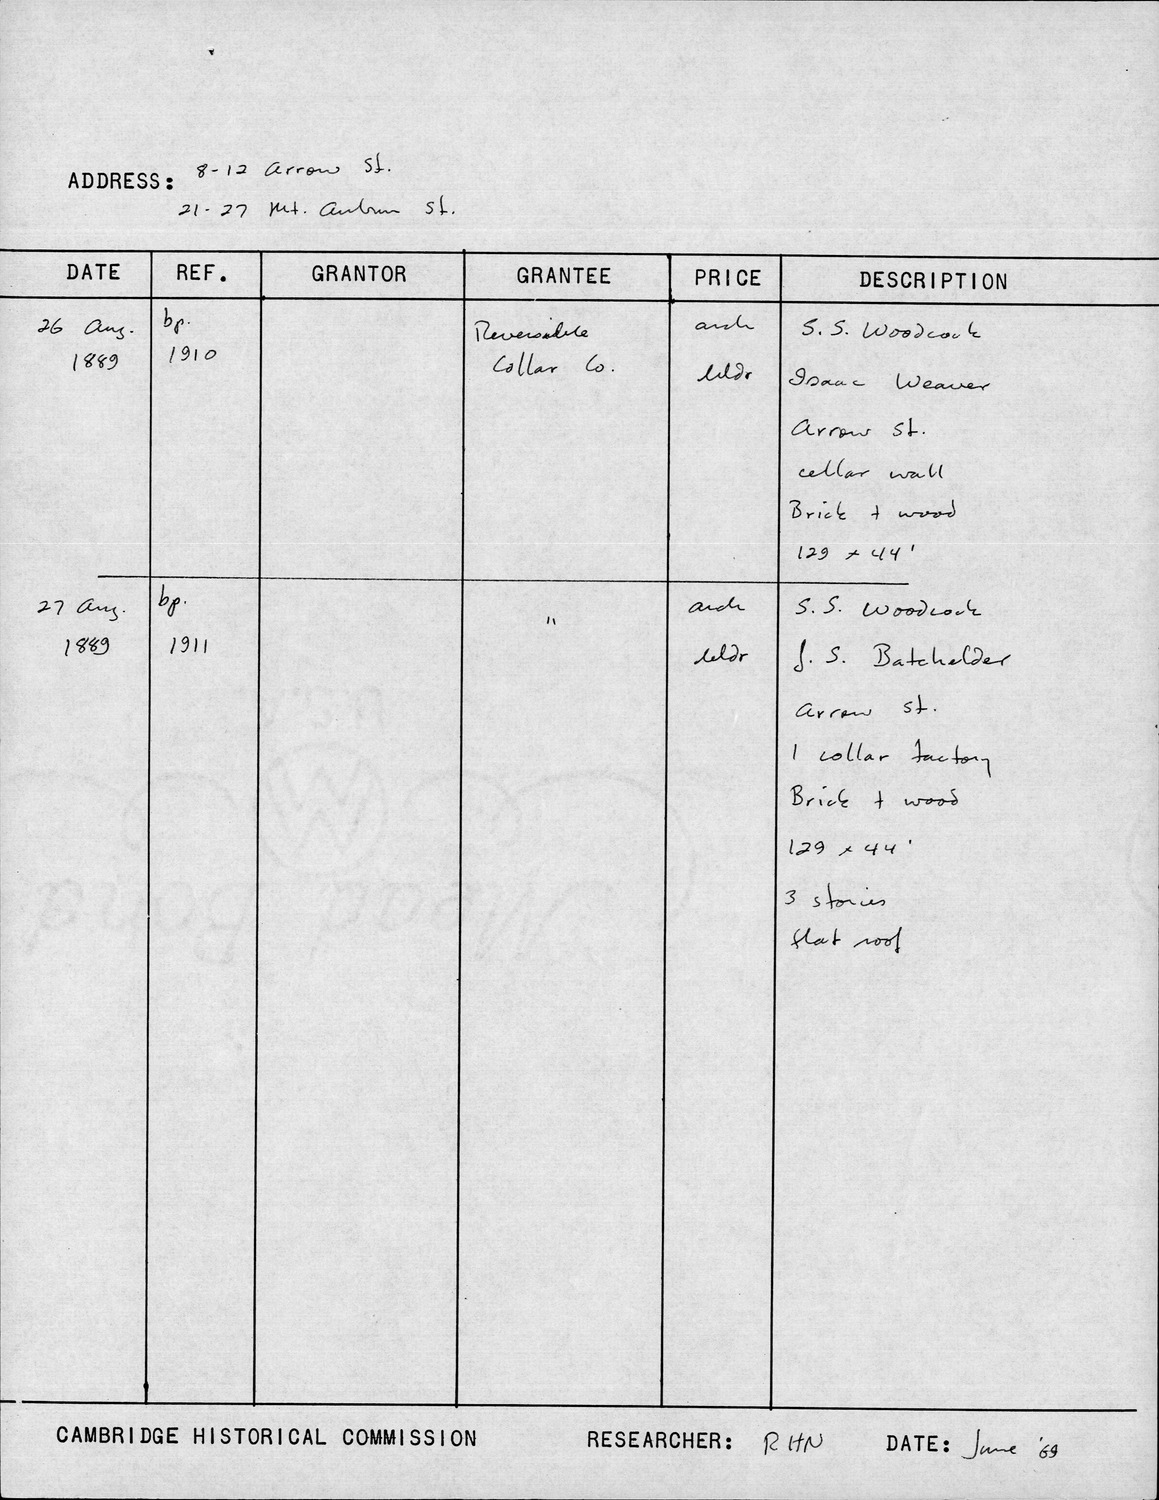 ADDRESS: 8-12 Arrow St.
21-27 Mt. Auburn St.
DATE REF. GRANTOR GRANTEE PRICE DESCRIPTION
26 Aug. bp. Reversible arch S. S. Woodcock
1889 1910 Collar Co. bldr Isaac Weaver
Arrow St.
cellar wall
Brick + wood
129 x 44'
27 Aug. bp. " arch S. S. Woodcock
1889 1911 bldr J. S. Batchelder
Arrow St.
1 collar factory
Brick + wood
129 x 44'
3 stories
flat roof
CAMBRIDGE HISTORICAL COMMISSION RESEARCHER: RHN DATE: June '69